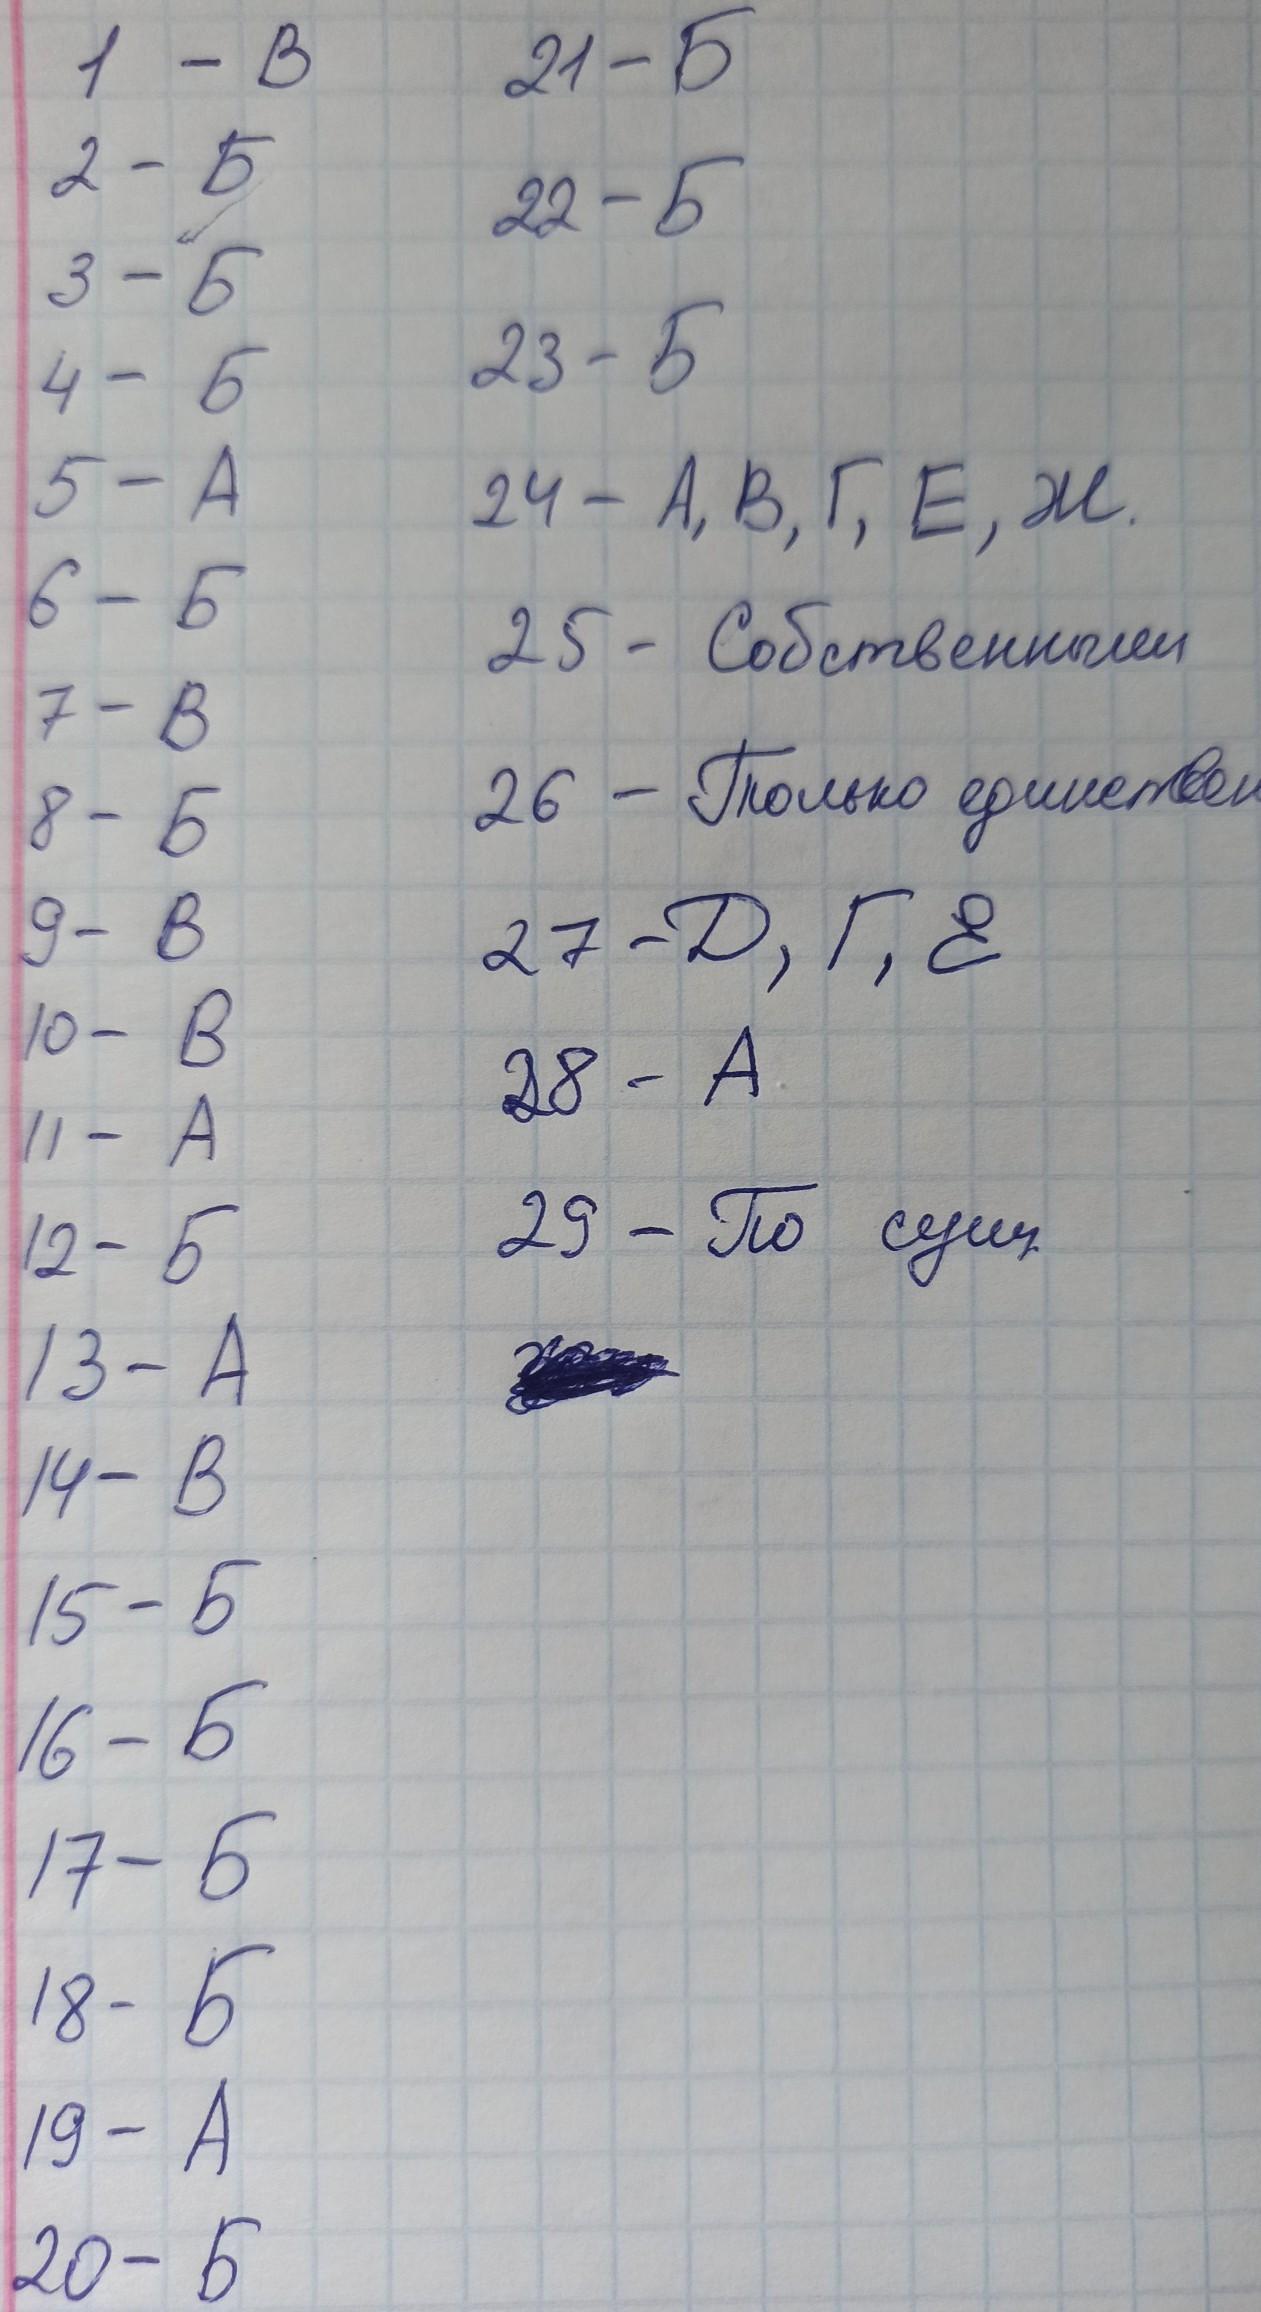 1 - В
2 - Б
3 - Б
4 - Б
5 - А
6 - Б
7 - В
8 - Б
9 - В
10 - В
11 - А
12 - Б
13 - А
14 - В
15 - Б
16 - Б
17 - Б
18 - Б
19 - А
20 - Б
21 - Б
22 - Б
23 - Б
24 - А, В, Г, Е, Ж.
25 - Собственными
26 - Только единствен
27 - D, Г, Е
28 - А
29 - По сущ